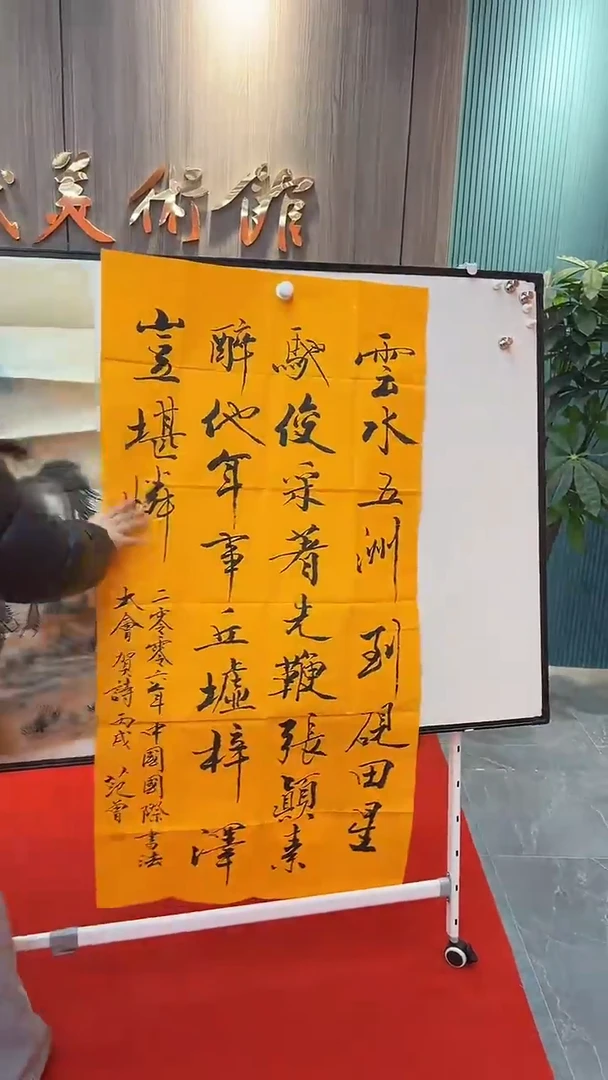 美術館
雲水五洲到硯田星
馳俊采著先鞭張顛素
醉他年事丘墟梓澤
豈堪憐
二零零六年中國國際書法
大會賀詩丙戌范曾